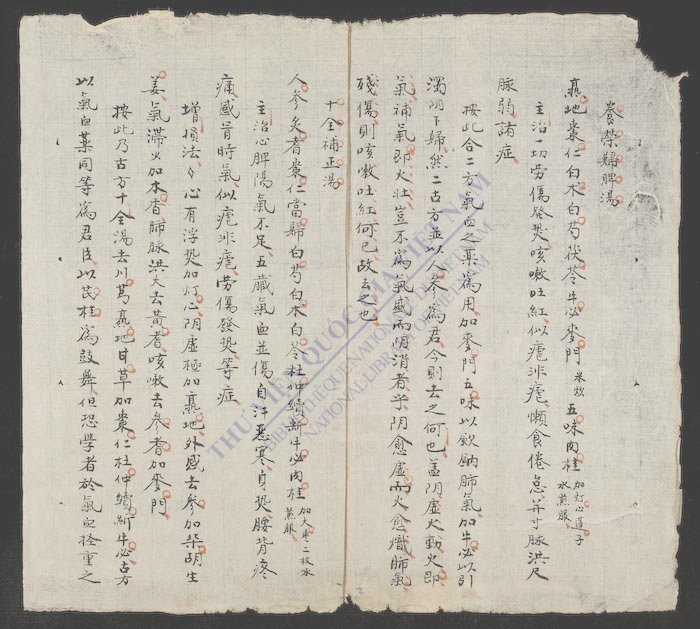 養荣歸脾湯
熟地棗仁白朮白芍茯苓牛必麥門米炊五味肉桂加灯心蓮子水煎服
主治一切劳傷發热咳嗽吐紅似瘧非瘧懶食倦怠并寸脉洪尺
脉弱諸症
按此合二方氣血之藥爲用加麥門五味以歛納肺氣加牛必以引
濁阴下歸然二古方並以人參爲君今則去之何也蓋阴虛火動火即
氣補氣即火壯豈不爲氣盛而阴消者乎阴愈虛而火愈熾肺氣
殘傷則咳嗽吐紅何已故去也
十全補正湯
人參炙耆棗仁當歸白芍白朮白苓杜仲續斷牛必肉桂加大棗二枚水煎服
主治心脾陽氣不足五臓氣血並傷自汗惡寒身热腰背疼
痛感冒時氣似瘧非瘧劳傷發热等症
增損法心有浮热加灯心阴虛極加熟地外感去參加柴胡生
姜氣滞火加木香肺脉洪大去黃耆咳嗽去參耆加麥門
按此乃古方十全湯去川芎熟地甘草加棗仁杜仲續斷牛必古方
以氣血藥同等爲君臣以芪桂爲鼓舞但恐學者於氣血輕重之
THƯ VIỆN QUỐC GIA VIỆT NAM
BIBLIOTHÈQUE NATIONALE DU VIETNAM
NATIONAL LIBRARY OF VIETNAM